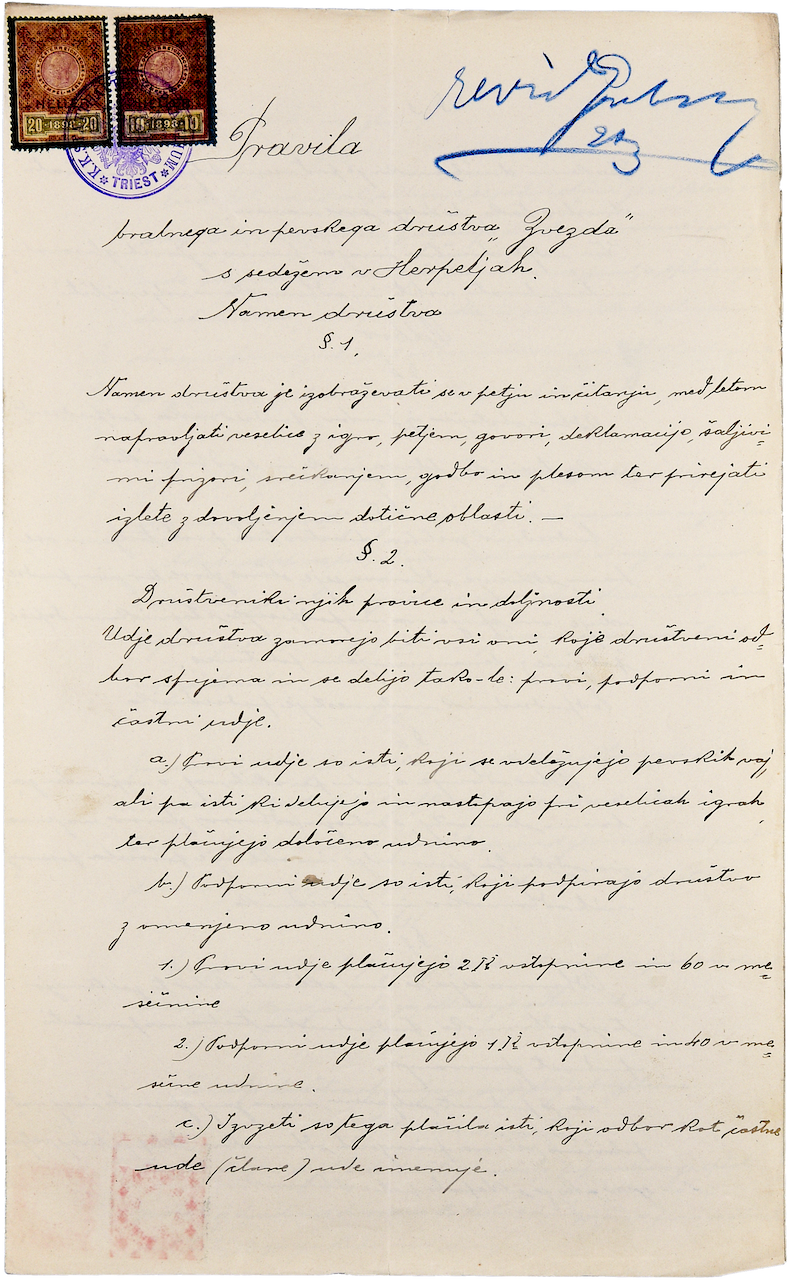 20 HELLER 20 1898 20
10 HELLER 10 1898 10
K.K. TRIEST
Pravila
bralnega in pevskega društva „Zvezda“
s sedežem v Herpeljah.
Namen društva
§. 1.
Namen društva je izobraževati se v petju in čitanju, med letom
napravljati veselice z igro, petjem, govori, deklamacijo, šaljivi-
mi prizori, srečkanjem, godbo in plesom ter prirejati
izlete z dovoljenjem dotične oblasti. —
§. 2.
Društveniki njih pravice in doljnosti
Udje društva zamorejo biti vsi oni, koje društveni od=
bor sprejema in se delijo tako-le: pravi, podporni in
častni udje.
a.) Pravi udje so isti, koji se vdeležujejo pevskih vaj,
ali pa isti ki delujejo in nastopajo pri veselicah igrah,
ter plačujejo določeno udnino.
b.) Podporni udje so isti, koji podpirajo društvo
z omenjeno udnino.
1.) Pravi udje plačujejo 2 K vstopnine in 60 v me=
sečnine
2.) Podporni udje plačujejo 1 K vstopnine in 40 v me=
sečne udnine.
c.) Izvzeti so tega plačila isti, koji odbor kot častne
ude (člane) ude imenuje.